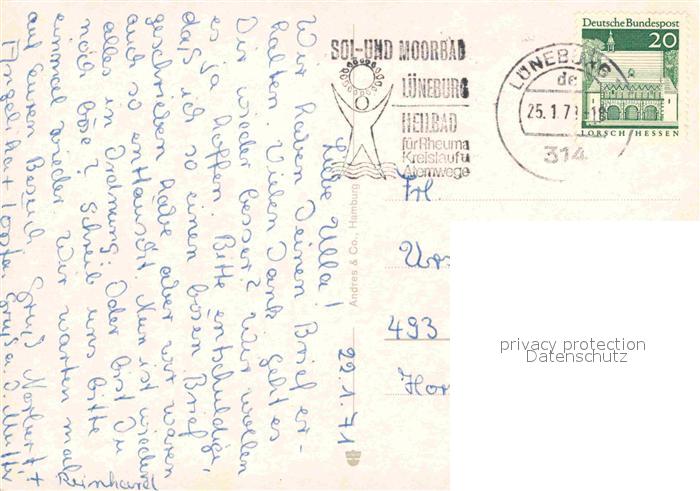 Deutsche Bundespost
20
LORSCH/HESSEN
SOL-UND MOORBAD
LÜNEBURG
HEILBAD
für Rheuma
Kreislauf u
Atemwege
LÜNEBURG
de
25.1.71-18
314
Frl.
493
Hor
privacy protection
Datenschutz
Andres & Co., Hamburg
22.1.71
Liebe Ulla!
Wir haben Deinen Brief er-
halten. Vielen Dank. Geht es
Dir wieder besser? Wir wollen
es ja hoffen. Bitte entschuldige,
daß ich so einen bösen Brief
geschrieben habe, aber wir waren
auch so enttäuscht. Nun ist wieder
alles in Ordnung. Oder bist Du
noch böse? Schreib uns bitte
einmal wieder. Wir warten mal
auf Euren Besuch. Gruß Norbert +
Angelika + Gruß a. D. Mutter
Reinhard